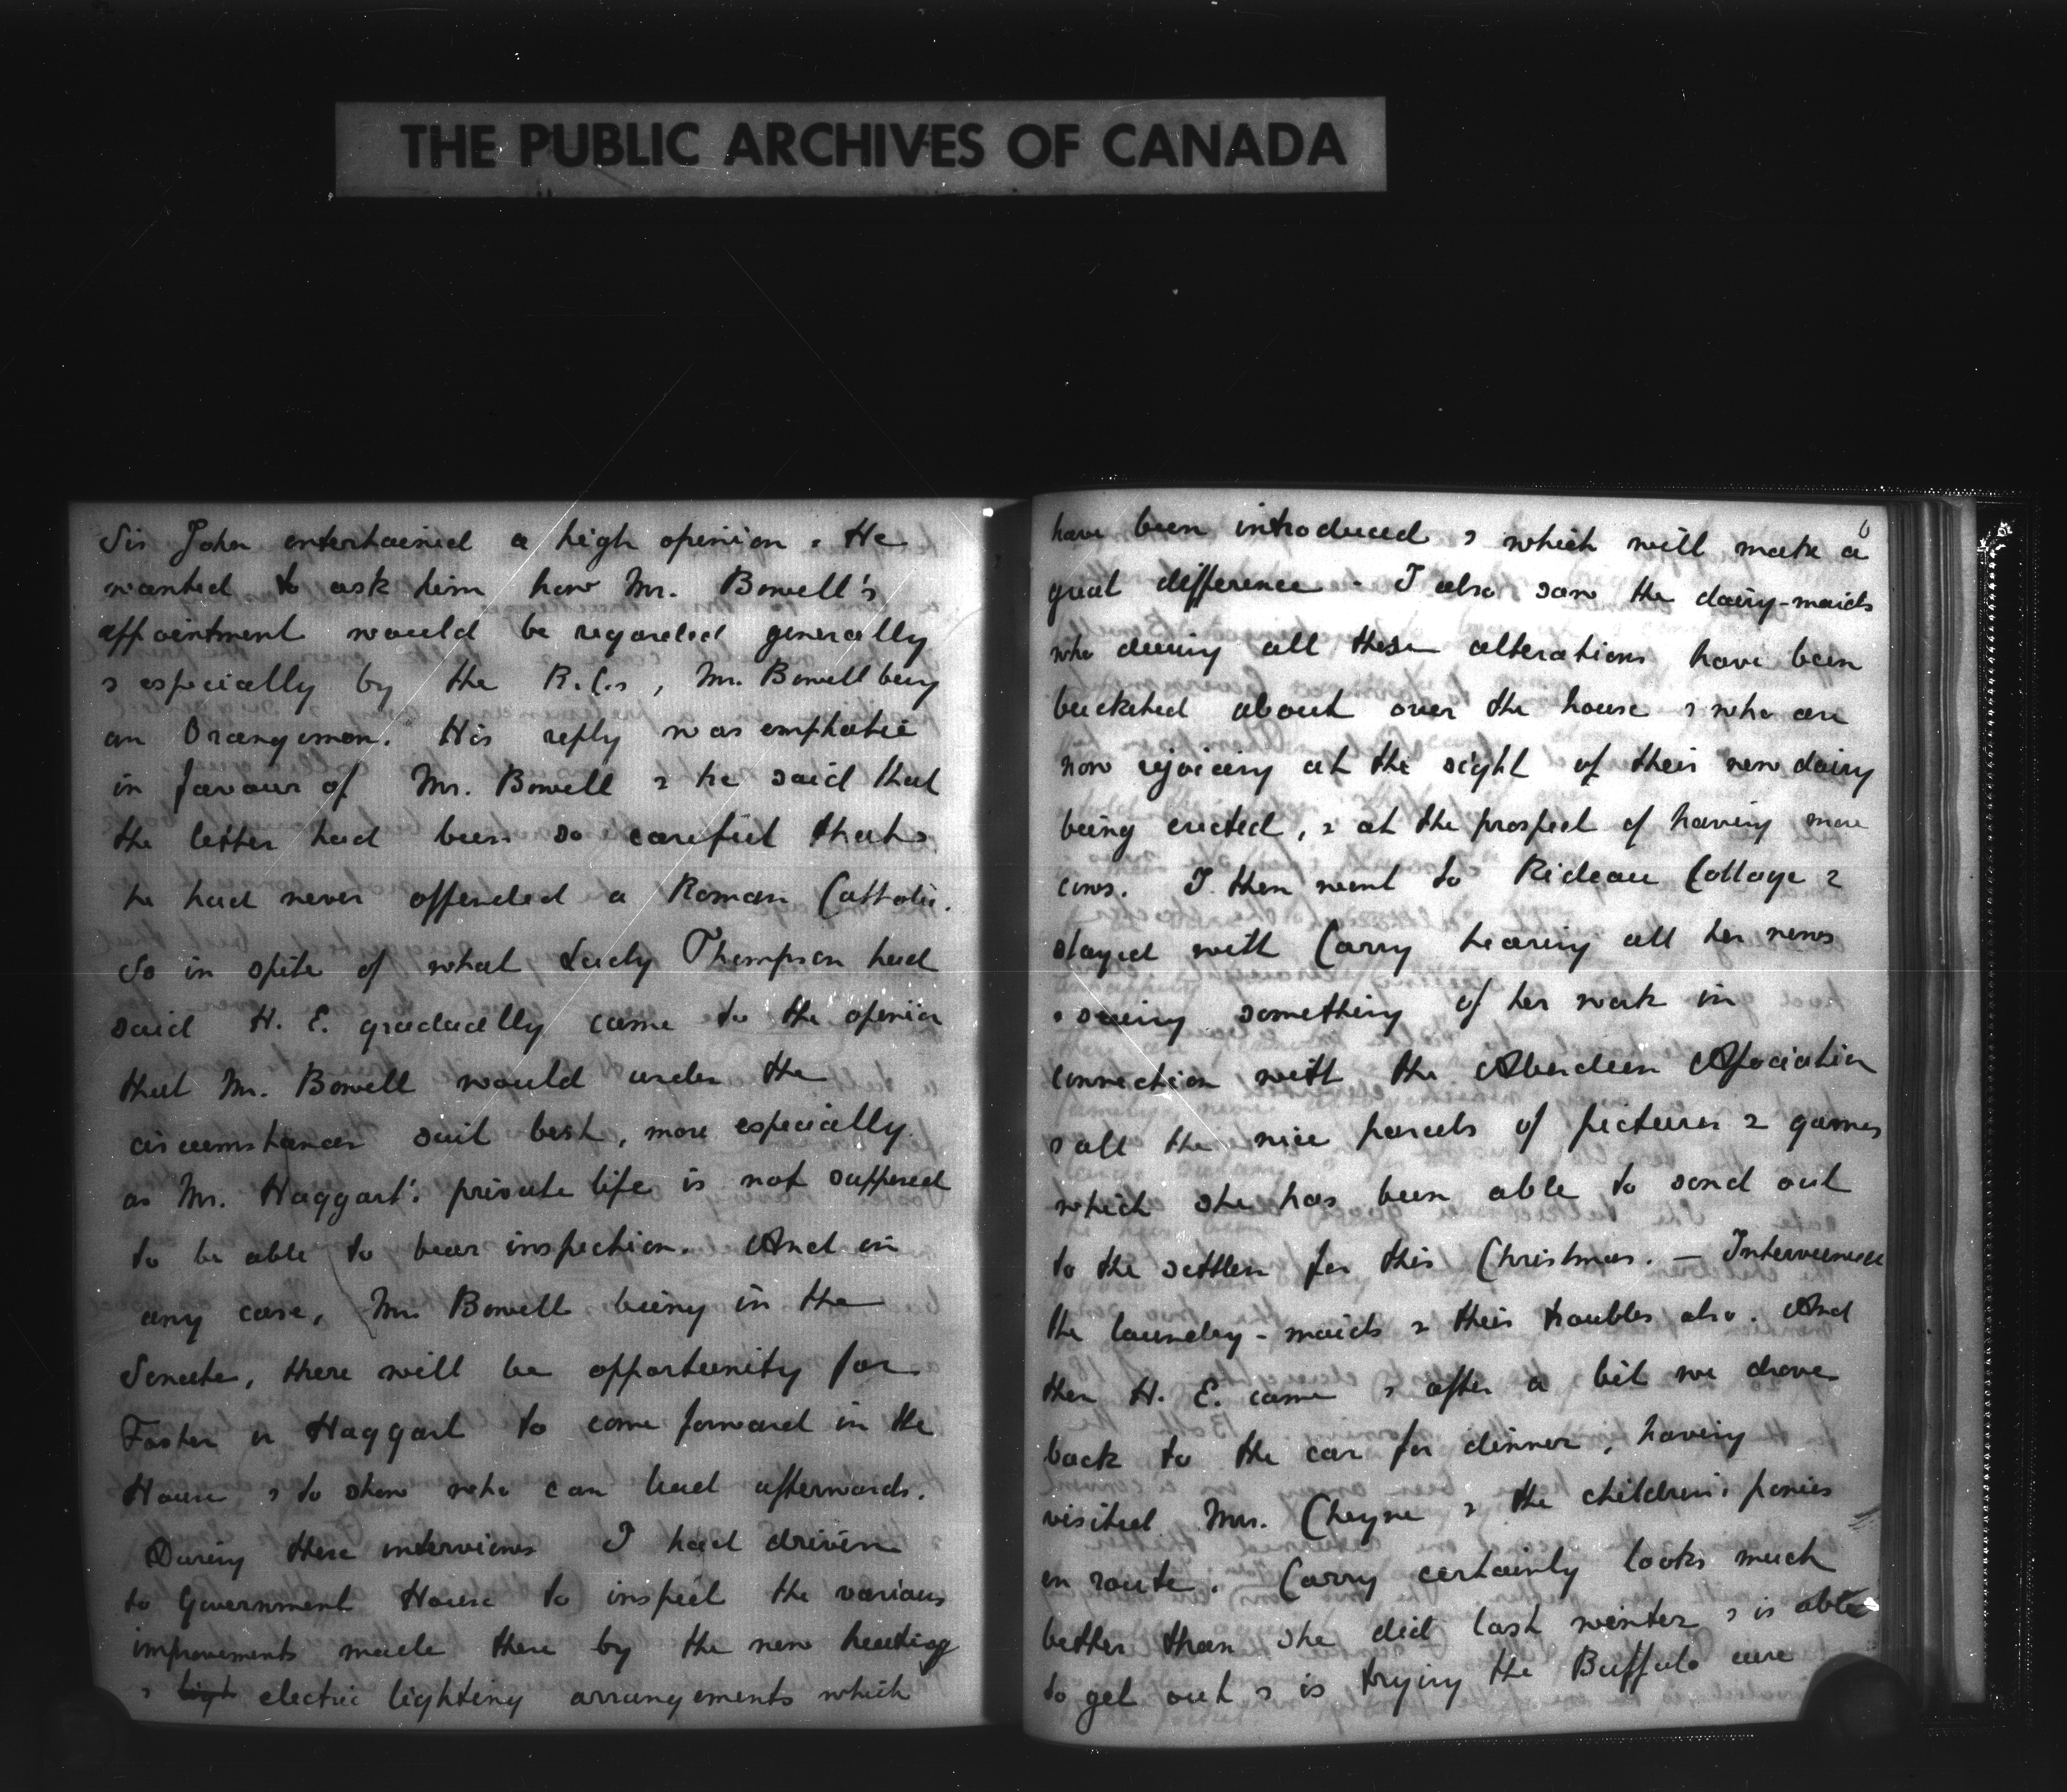 THE PUBLIC ARCHIVES OF CANADA
Sir John entertained a high opinion. He
wanted to ask him how Mr. Bowell's
appointment would be regarded generally
& especially by the R.C.s, Mr. Bowell being
an Orangeman. His reply was emphatic
in favour of Mr. Bowell & he said that
the latter had been so careful that
he had never offended a Roman Catholic.
So in spite of what Lady Thompson had
said H. E. gradually came to the opinion
that Mr. Bowell would under the
circumstances suit best, more especially
as Mr. Haggart's private life is not supposed
to be able to bear inspection. And in
any case, Mr. Bowell being in the
Senate, there will be opportunity for
Foster or Haggart to come forward in the
House & to show who can lead afterwards.
During these interviews I had driven
to Government House to inspect the various
improvements made there by the new heating
& light electric lighting arrangements which
6
have been introduced & which will make a
great difference - I also saw the dairy-maids
who during all these alterations have been
bucketed about over the house & who are
now rejoicing at the sight of their new dairy
being erected, & at the prospect of having more
cows. I then went to Rideau Cottage &
stayed with Carry hearing all her news
& seeing something of her work in
connection with the Aberdeen Association
& all the nice parcels of pictures & games
which she has been able to send out
to the settlers for this Christmas. — Interviewed
the laundry-maids & their troubles also. And
then H. E. came & after a bit we drove
back to the car for dinner, having
visited Mrs. Cheyne & the children's ponies
en route. Carry certainly looks much
better than she did last winter & is able
to get out & is trying the Buffalo cure